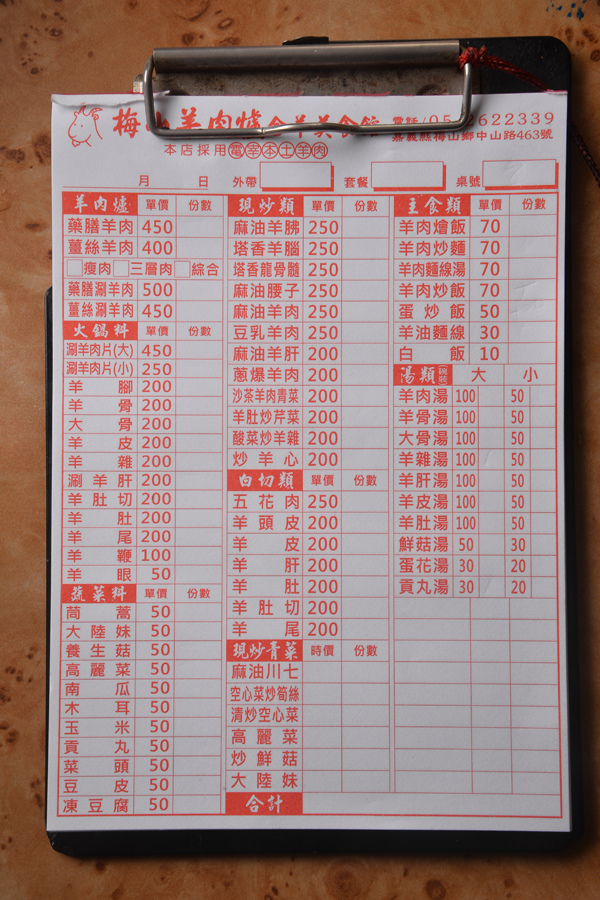 梅山羊肉爐全羊美食館
電話/05-2622339
嘉義縣梅山鄉中山路463號
本店採用電宰本土羊肉
月 日 外帶 套餐 桌號
羊肉爐 單價 份數
藥膳羊肉 450
薑絲羊肉 400
瘦肉 三層肉 綜合
藥膳涮羊肉 500
薑絲涮羊肉 450
火鍋料 單價 份數
涮羊肉片(大) 450
涮羊肉片(小) 250
羊腳 200
羊骨 200
大骨 200
羊皮 200
羊雜 200
涮羊肝 200
羊肚切 200
羊肚 200
羊尾 200
羊鞭 100
羊眼 50
蔬菜料 單價 份數
茼蒿 50
大陸妹 50
養生菇 50
高麗菜 50
南瓜 50
木耳 50
玉米 50
貢丸 50
菜頭 50
豆皮 50
凍豆腐 50
現炒類 單價 份數
麻油羊胇 250
塔香羊腦 250
塔香龍骨髓 250
麻油腰子 250
麻油羊肉 250
豆乳羊肉 250
麻油羊肝 200
蔥爆羊肉 200
沙茶羊肉青菜 200
羊肚炒芹菜 200
酸菜炒羊雜 200
炒羊心 200
白切類 單價 份數
五花肉 250
羊頭皮 200
羊皮 200
羊肝 200
羊肚 200
羊肚切 200
羊尾 200
現炒青菜 時價 份數
麻油川七
空心菜炒筍絲
清炒空心菜
高麗菜
炒鮮菇
大陸妹
合計
主食類 單價 份數
羊肉燴飯 70
羊肉炒麵 70
羊肉麵線湯 70
羊肉炒飯 70
蛋炒飯 50
羊油麵線 30
白飯 10
湯類 大 小
羊肉湯 100 50
羊骨湯 100 50
大骨湯 100 50
羊雜湯 100 50
羊肝湯 100 50
羊皮湯 100 50
羊肚湯 100 50
鮮菇湯 50 30
蛋花湯 30 20
貢丸湯 30 20